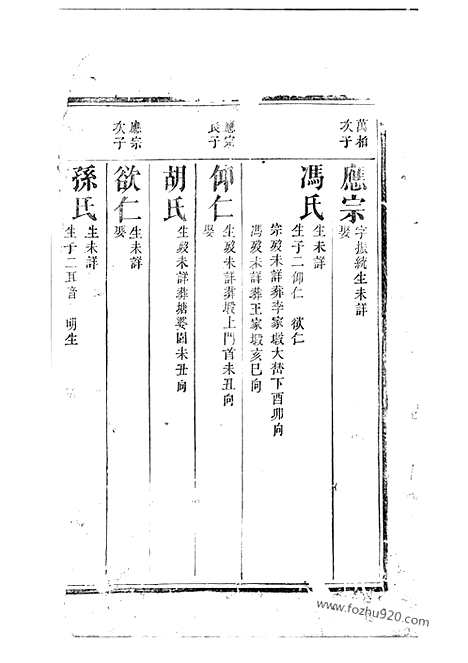 萬柏
次子
應宗
字振統生未詳
娶
馮氏
生未詳
生子二仰仁 欲仁
宗歿未詳葬李家塅大營下酉卯向
馮歿未詳葬王家塅亥巳向
應宗
長子
仰仁
生歿未詳葬塅上門首未丑向
娶
胡氏
生歿未詳葬塘婆園未丑向
應宗
次子
欲仁
生未詳
娶
孫氏
生未詳
生子二 明生
www.fozhu920.com